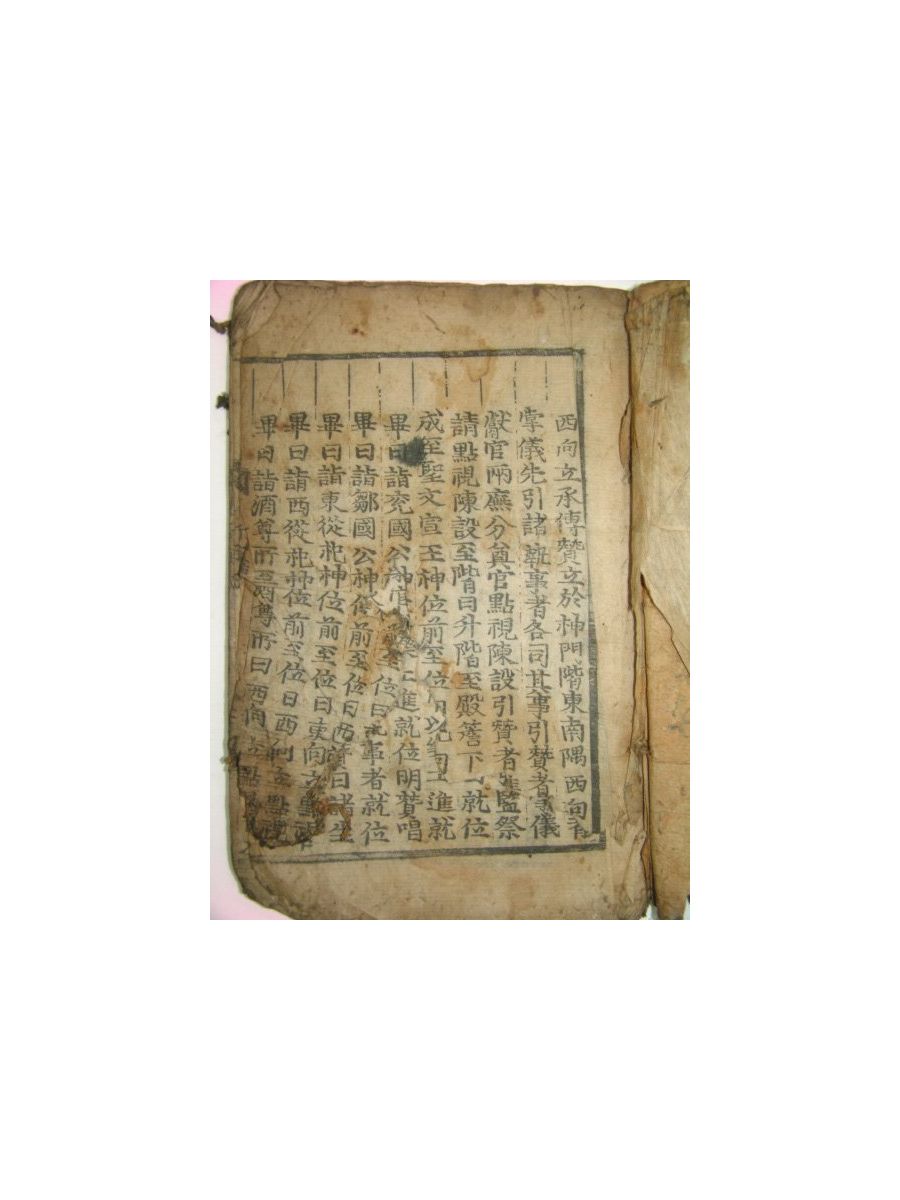 西向立承傳贊立於神門階東南隅西向
掌儀先引諸執事者各司其事引贊者 儀
獻官兩廡分奠官點視陳設引贊者 監祭
請點視陳設至階曰升階至殿簷下曰就位
成至聖文宣王神位前至位曰 進就
畢曰詣兗國公神位 進就位明贊唱
畢曰詣鄒國公神位前至位曰 者就位
畢曰詣東從祀神位前至位曰東向立
畢曰詣西從祀神位前至位曰西向立點視
畢曰詣酒尊所至酒尊所曰西向立點